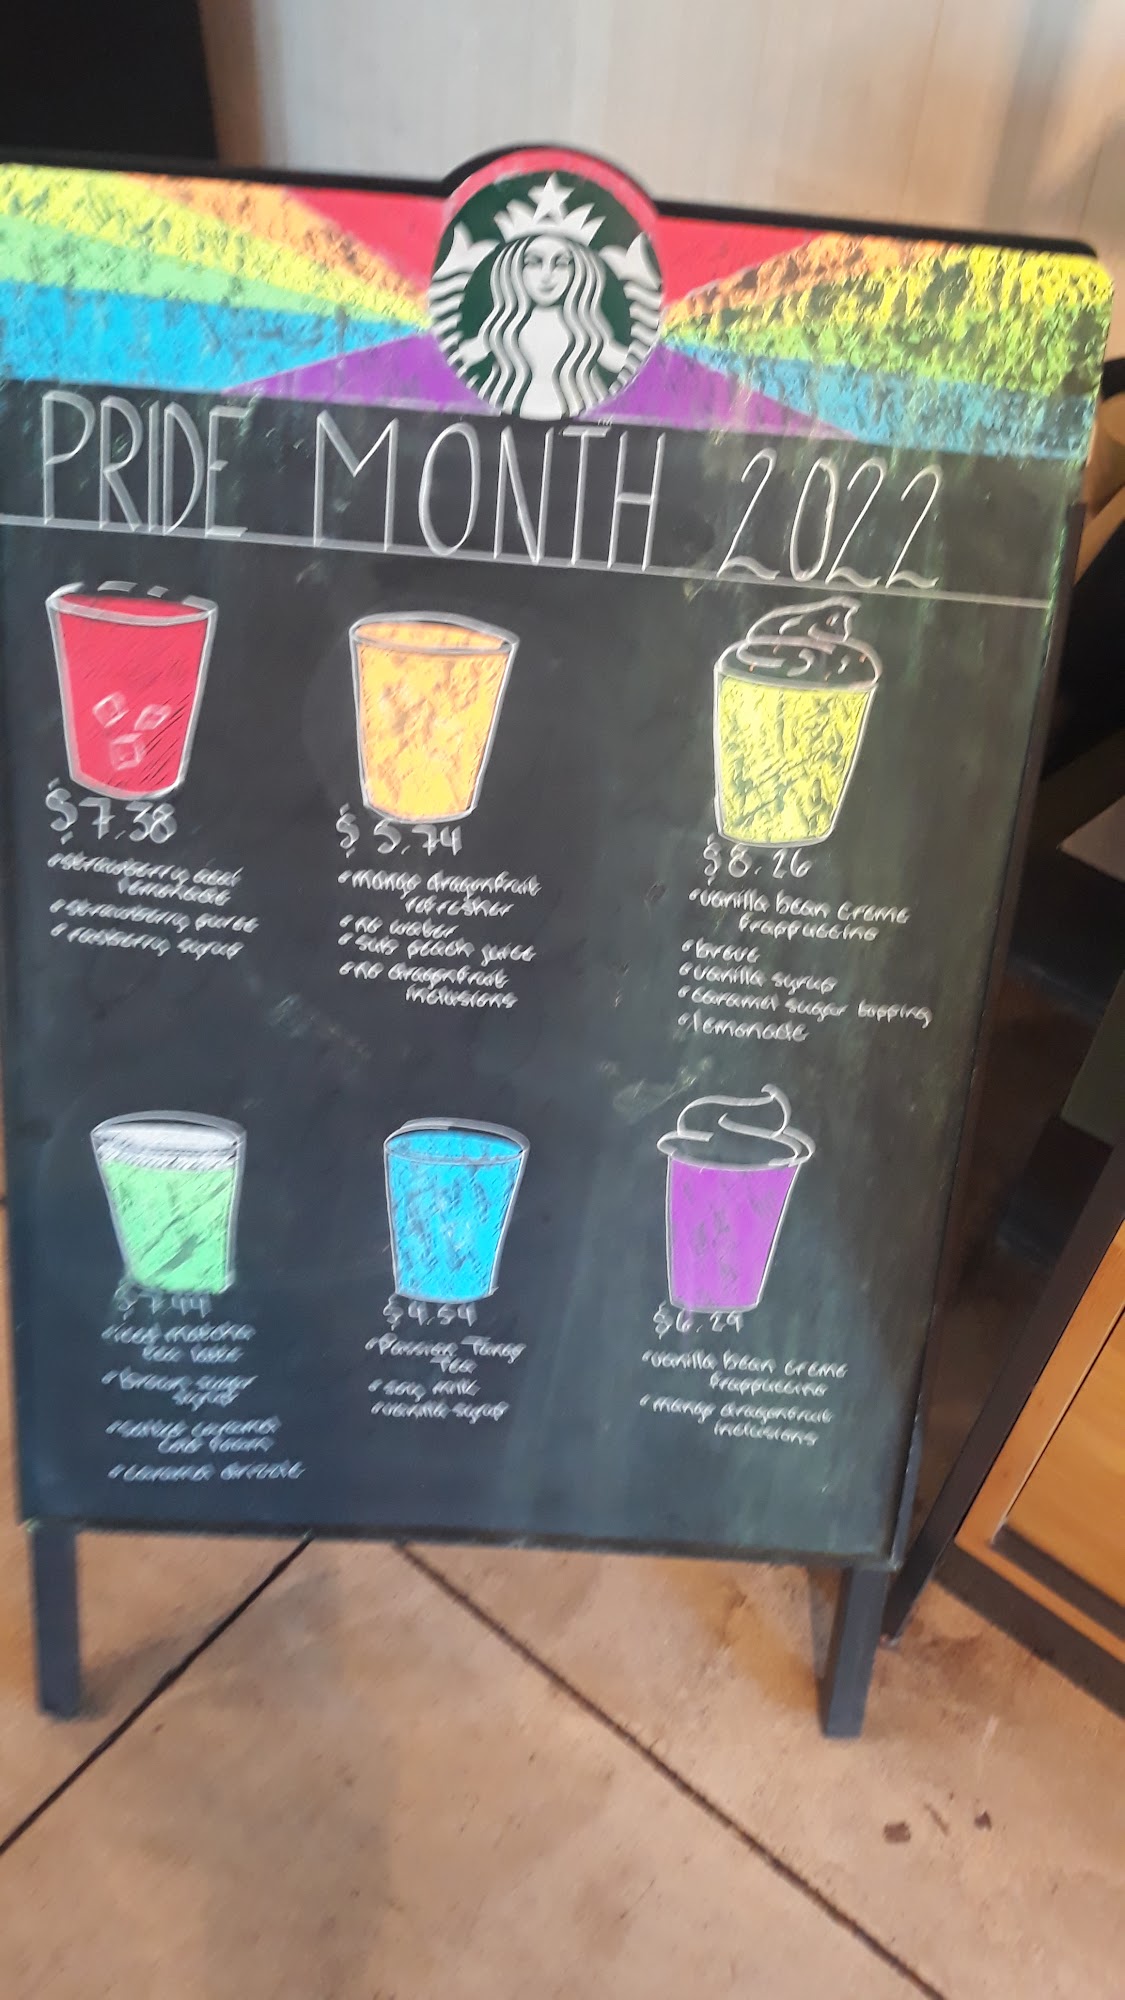 PRIDE MONTH 2022
$7.38
•strawberry acai
lemonade
•strawberry puree
•rasberry syrup
$5.74
•mango dragonfruit
refresher
•no water
•sub peach juice
•no dragonfruit
inclusions
$8.26
•vanilla bean creme
frappuccino
•breve
•vanilla syrup
•caramel sugar topping
•lemonade
$7.44
•iced matcha
tea latte
•brown sugar
syrup
caramel
foam
•caramel drizzle
$4.54
•Passion Tango
Tea
•soy milk
•vanilla syrup
$6.29
•vanilla bean creme
frappuccino
•mango dragonfruit
inclusions